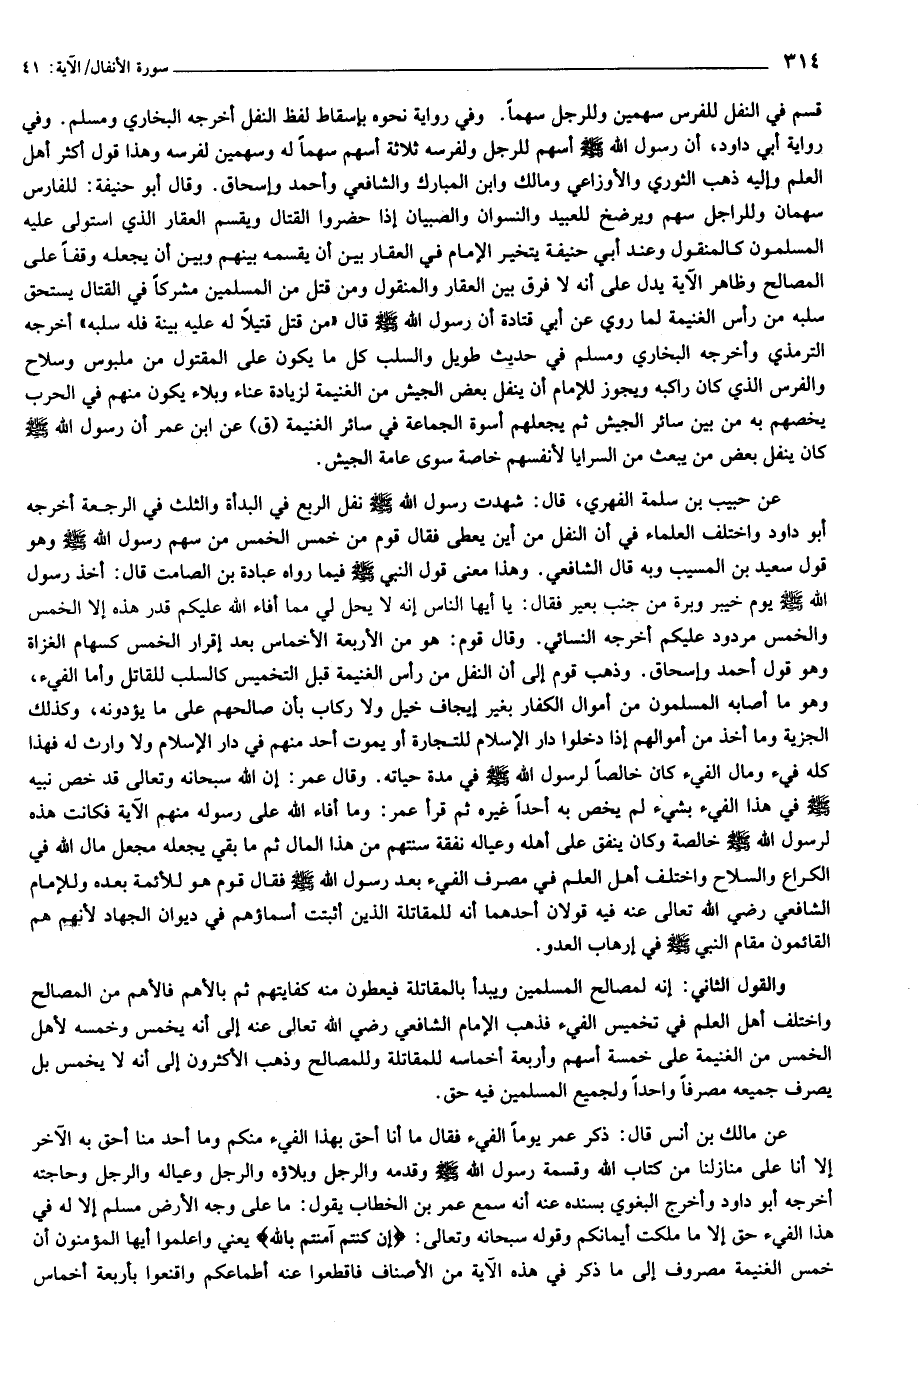 ٣١٤ سورة الأنفال/ الآية: ٤١
قسم في النفل للفرس سهمين وللرجل سهماً. وفي رواية نحوه بإسقاط لفظ النفل أخرجه البخاري ومسلم. وفي
رواية أبي داود، أن رسول الله ﷺ أسهم للرجل ولفرسه ثلاثة أسهم سهماً له وسهمين لفرسه وهذا قول أكثر أهل
العلم وإليه ذهب الثوري والأوزاعي ومالك وابن المبارك والشافعي وأحمد وإسحاق. وقال أبو حنيفة: للفارس
سهمان وللراجل سهم ويرضخ للعبيد والنسوان والصبيان إذا حضروا القتال ويقسم العقار الذي استولى عليه
المسلمون كالمنقول وعند أبي حنيفة يتخير الإمام في العقار بين أن يقسمه بينهم وبين أن يجعله وقفاً على
المصالح وظاهر الآية يدل على أنه لا فرق بين العقار والمنقول ومن قتل من المسلمين مشركاً في القتال يستحق
سلبه من رأس الغنيمة لما روي عن أبي قتادة أن رسول الله ﷺ قال «من قتل قتيلاً له عليه بينة فله سلبه» أخرجه
الترمذي وأخرجه البخاري ومسلم في حديث طويل والسلب كل ما يكون على المقتول من ملبوس وسلاح
والفرس الذي كان راكبه ويجوز للإمام أن ينفل بعض الجيش من الغنيمة لزيادة عناء وبلاء يكون منهم في الحرب
يخصهم به من بين سائر الجيش ثم يجعلهم أسوة الجماعة في سائر الغنيمة (ق) عن ابن عمر أن رسول الله ﷺ
كان ينفل بعض من يبعث من السرايا لأنفسهم خاصة سوى عامة الجيش.
عن حبيب بن سلمة الفهري، قال: شهدت رسول الله ﷺ نفل الربع في البدأة والثلث في الرجعة أخرجه
أبو داود واختلف العلماء في أن النفل من أين يعطى فقال قوم من خمس الخمس من سهم رسول الله ﷺ وهو
قول سعيد بن المسيب وبه قال الشافعي. وهذا معنى قول النبي ﷺ فيما رواه عبادة بن الصامت قال: أخذ رسول
الله ﷺ يوم خيبر وبرة من جنب بعير فقال: يا أيها الناس إنه لا يحل لي مما أفاء الله عليكم قدر هذه إلا الخمس
والخمس مردود عليكم أخرجه النسائي. وقال قوم: هو من الأربعة الأخماس بعد إقرار الخمس كسهام الغزاة
وهو قول أحمد وإسحاق. وذهب قوم إلى أن النفل من رأس الغنيمة قبل التخميس كالسلب للقاتل وأما الفيء،
وهو ما أصابه المسلمون من أموال الكفار بغير إيجاف خيل ولا ركاب بأن صالحهم على ما يؤدونه، وكذلك
الجزية وما أخذ من أموالهم إذا دخلوا دار الإسلام للتجارة أو يموت أحد منهم في دار الإسلام ولا وارث له فهذا
كله فيء ومال الفيء كان خالصاً لرسول الله ﷺ في مدة حياته. وقال عمر: إن الله سبحانه وتعالى قد خص نبيه
ﷺ في هذا الفيء بشيء لم يخص به أحداً غيره ثم قرأ عمر: وما أفاء الله على رسوله منهم الآية فكانت هذه
لرسول الله ﷺ خالصة وكان ينفق على أهله وعياله نفقة سنتهم من هذا المال ثم ما بقي يجعله مجعل مال الله في
الكراع والسلاح واختلف أهل العلم في مصرف الفيء بعد رسول الله ﷺ فقال قوم هو للأئمة بعده وللإمام
الشافعي رضي الله تعالى عنه فيه قولان أحدهما أنه للمقاتلة الذين أثبتت أسماؤهم في ديوان الجهاد لأنهم هم
القائمون مقام النبي ﷺ في إرهاب العدو.
والقول الثاني: إنه لمصالح المسلمين ويبدأ بالمقاتلة فيعطون منه كفايتهم ثم بالأهم فالأهم من المصالح
واختلف أهل العلم في تخميس الفيء فذهب الإمام الشافعي رضي الله تعالى عنه إلى أنه يخمس وخمسه لأهل
الخمس من الغنيمة على خمسة أسهم وأربعة أخماسه للمقاتلة وللمصالح وذهب الأكثرون إلى أنه لا يخمس بل
يصرف جميعه مصرفاً واحداً ولجميع المسلمين فيه حق.
عن مالك بن أنس قال: ذكر عمر يوماً الفيء فقال ما أنا أحق بهذا الفيء منكم وما أحد منا أحق به الآخر
إلا أنا على منازلنا من كتاب الله وقسمة رسول الله ﷺ وقدمه والرجل وبلاؤه والرجل وعياله والرجل وحاجته
أخرجه أبو داود وأخرج البغوي بسنده عنه أنه سمع عمر بن الخطاب يقول: ما على وجه الأرض مسلم إلا له في
هذا الفيء حق إلا ما ملكت أيمانكم وقوله سبحانه وتعالى: ﴿إن كنتم آمنتم بالله﴾ يعني واعلموا أيها المؤمنون أن
خمس الغنيمة مصروف إلى ما ذكر في هذه الآية من الأصناف فاقطعوا عنه أطماعكم واقنعوا بأربعة أخماس